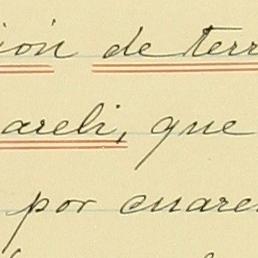 ión de terr
areli, que
por cuare